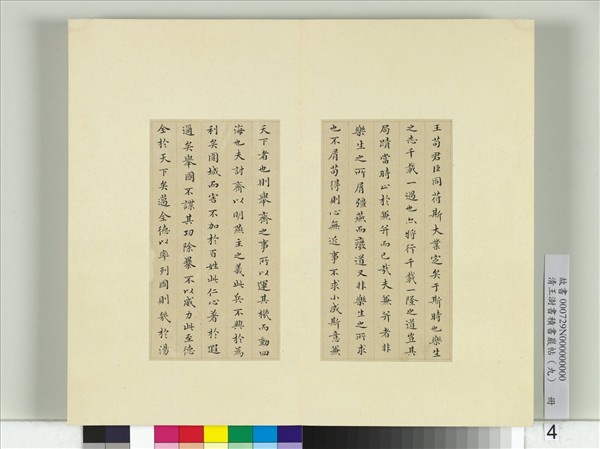 王苟君臣同苻斯大業定矣于斯時也樂生
之志千載一遇也亦將行千載一隆之道豈其
局蹟當時止於兼并而已哉夫兼并者非
樂生之所屑強燕而廢道又非樂生之所求
也不屑苟得則心無近事不求小成斯意兼
天下者也則舉齊之事所以運其機而動四
海也夫討齊以明燕主之義此兵不興於為
利矣圍城而害不加於百姓此仁心著於遐
邇矣舉國不謀其功除暴不以威力此至德
全於天下矣邁全德以率列國則幾於湯
故書 000729N000000000
清王澍書積書巖帖（九） 冊
4